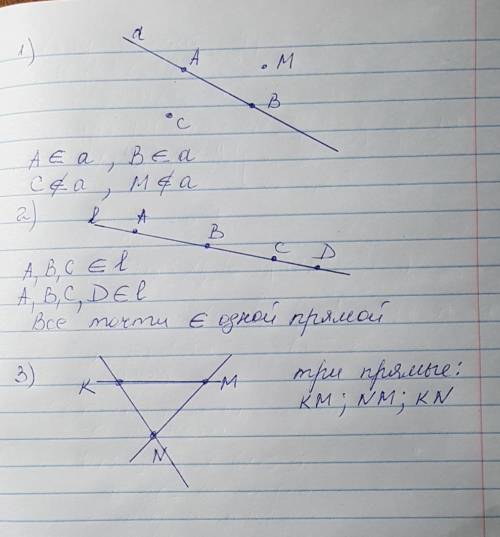 1)
a
A
M
B
C
A ∈ a , B ∈ a
C ∉ a , M ∉ a
2)
l
A
B
C
D
A, B, C ∈ l
A, B, C, D ∈ l
Все точти ∈ одной прямой
3)
K
M
три прямые:
KM; NM; KN
N